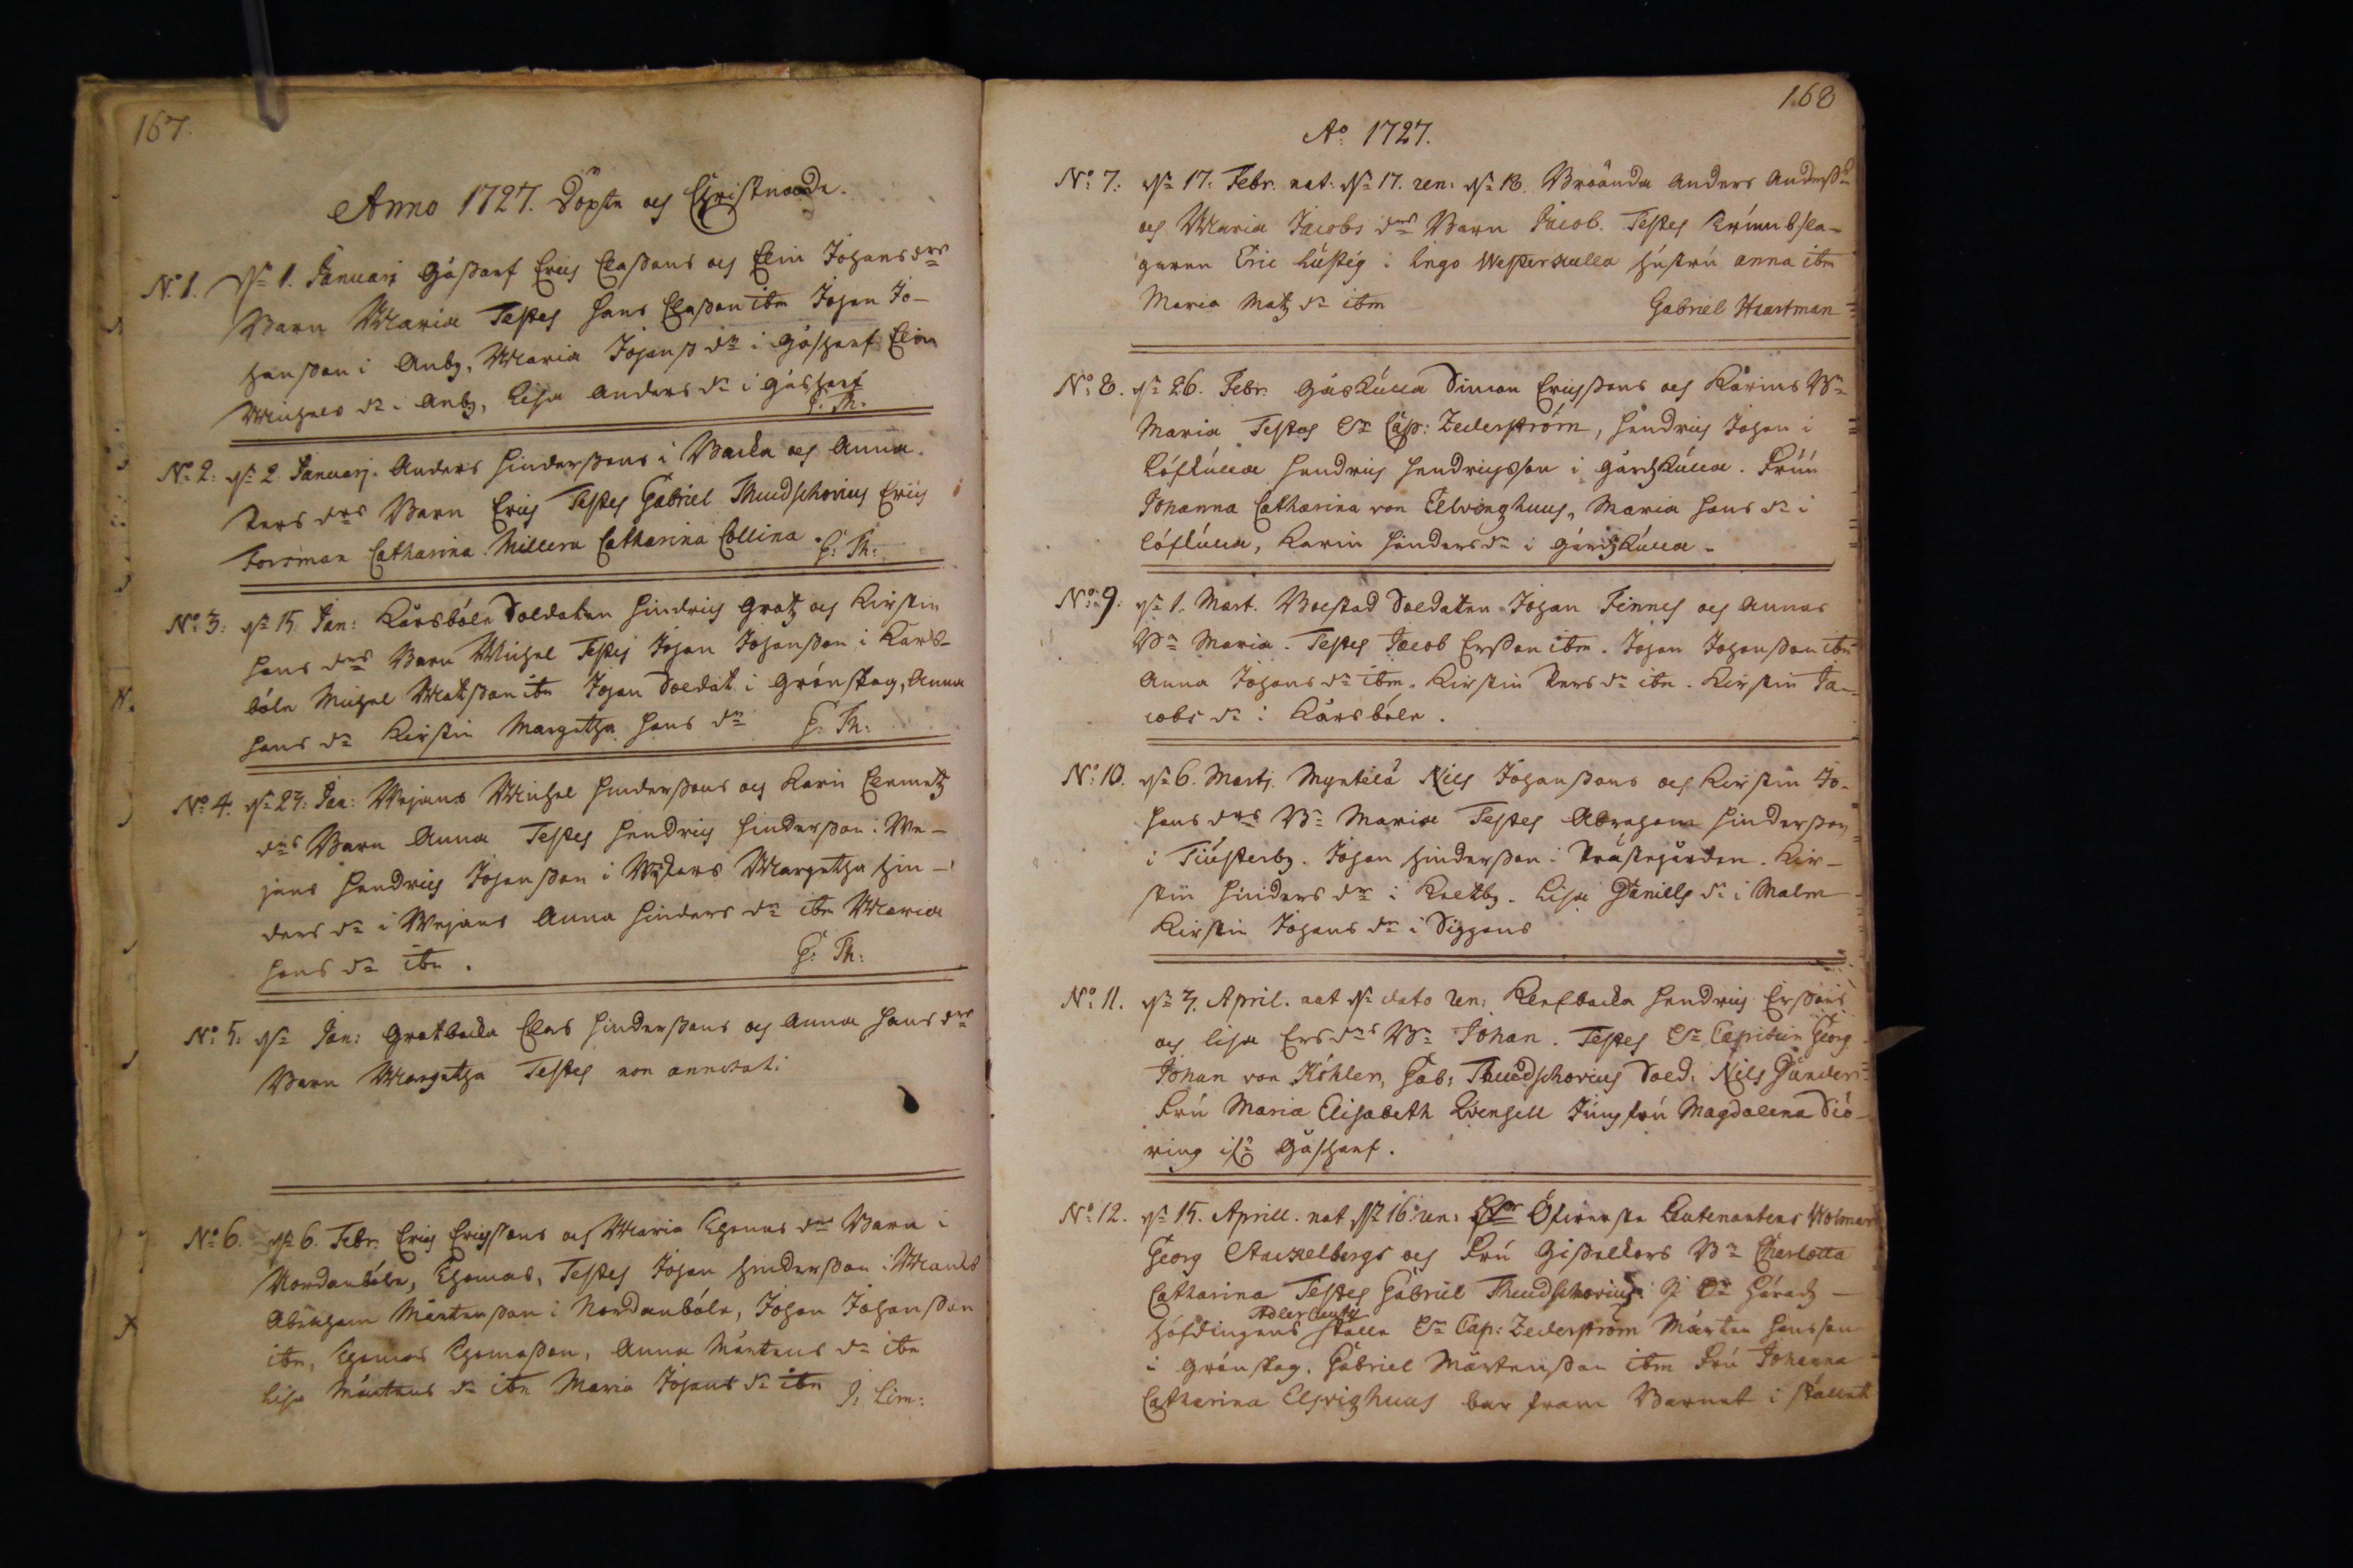 167.
Anno 1727. Döpte och Christnade.
N:1. d. 1. Januarj Gåsharf Erich Claßons och Elin Johansdrs
Barn Maria Testes Hans Claßon ibm Johan Jo-
hanßon i Anby, Maria Johans dr i Gåsharf Elin
Michels dr i Anby, Lisa Anders dr i Gåsharf
G: Th:
No 2: d. 2 Januarj. Anders Hinderßons i Backa och Anna
Pers drs Barn Erich Testes Gabriel Thudschovius Erich
Forsman Catharina Millera Catharina Collina.
G: Th:
No 3: d. 15 Jan: Kårsböle Soldaten Hindrich Grotz och Kirstin
Hans drs Barn Michel Testes Johan Johanßon i Kars-
böle Michel Matßon ibm Johan Soldat i Grönskog, Anna
Hans dr Kirstin Margetha Hans dr G: Th:
No 4. d. 27: Jan: Wejans Michel Hinderßons och Karin Clemetz
drs Barn Anna Testes Hendrich Hinderßon i We-
jans Hendrich Johanßon i Margetha Hin-
ders dr i Wejans Anna Hinders dr ibm Maria
Hans dr ibm. G: Th:
No 5: d. Jan: Grotbacka Clas Hinderßons och Anna Hans drs
Barn Margetha Testes non annotat:
No 6. d. 6. Febr. Erich Erichßons och Maria Thomas drs Barn i
Nordanböle, Thomas, Testes Johan Hinderßon i
Abraham Mårtenßon i Nordanböle, Johan Johanßon
ibm, Thomas Thomaßon, Anna Mårtens dr ibm
Lisa Mårtens dr ibm Maria Johans dr ibm J: Lim:
168
Ao 1727.
No 7: d. 17: Febr. nat: d. 17. ren: d. 18. Anders Andersß.
och Maria Jacobs drs Barn Jacob. Testes Trumbsla-
garen Eric Lustig i Ingo Westerkulla hustru Anna ibm
Maria Matz dr ibm Gabriel Haartman
No 8. d. 26. Febr. Gåskulla Simon Erichßons och Karins Bn
Maria Testes Hr Cap: Zederström, Hendrich Johan i
Löfkulla Hendrich Hendrichsson i Gårdzkulla. Fruu
Johanna Catharina von Elvinghuus, Maria Hans dr i
Löfkulla, Karin Hinders dr i Gårdzkulla.
No 9: d. 1. Mart. Bolstad Soldaten Johan Finnes och Annas
Bn Maria. Testes Jacob Erßon ibm. Johan Johanßon ibm
Anna Johans dr ibm. Kirstin Pers dr ibm. Kirstin Ja-
cobs dr i Kårsböle.
No 10. d. 6. Martj. Myntilä Nils Johanßons och Kirstin Jo-
hans drs Bn Maria Testes Abraham Hinderßon
i Tiusterby. Johan Hinderßon i Prästegården. Kir-
stin Hinders dr i Kretby. Lisa Daniels dr i Malm
Kirstin Johans dr i Siggans
No 11. d. 7. April. nat d. dato ren: Klefbacka Hendrich Erßons
och Lisa Ers drs Bn Johan. Testes Hr Capitein Georg
Johan von Köhler, Gab: Thudschovius Sold: Nils Gunder
Fru Maria Elisabeth Qvensell Jungfru Magdalena Siö-
ring if: Gåsharf.
No 12. d. 15. Aprill. nat d. 16 ren: Öfwerste Leutenantens Wolmar
Georg Stackelbergs och Fru Gißelkors Bn Charlotta
Catharina Testes Gabriel Thudschovius i Hr Härads-
höfdingens Adlercreutz ställe Hr Cap: Zederström Mårten Hansson
i Grönskog. Gabriel Mårtenßon ibm Fru Johanna
Catharina Elfvighuus bar fram Barnet i stället